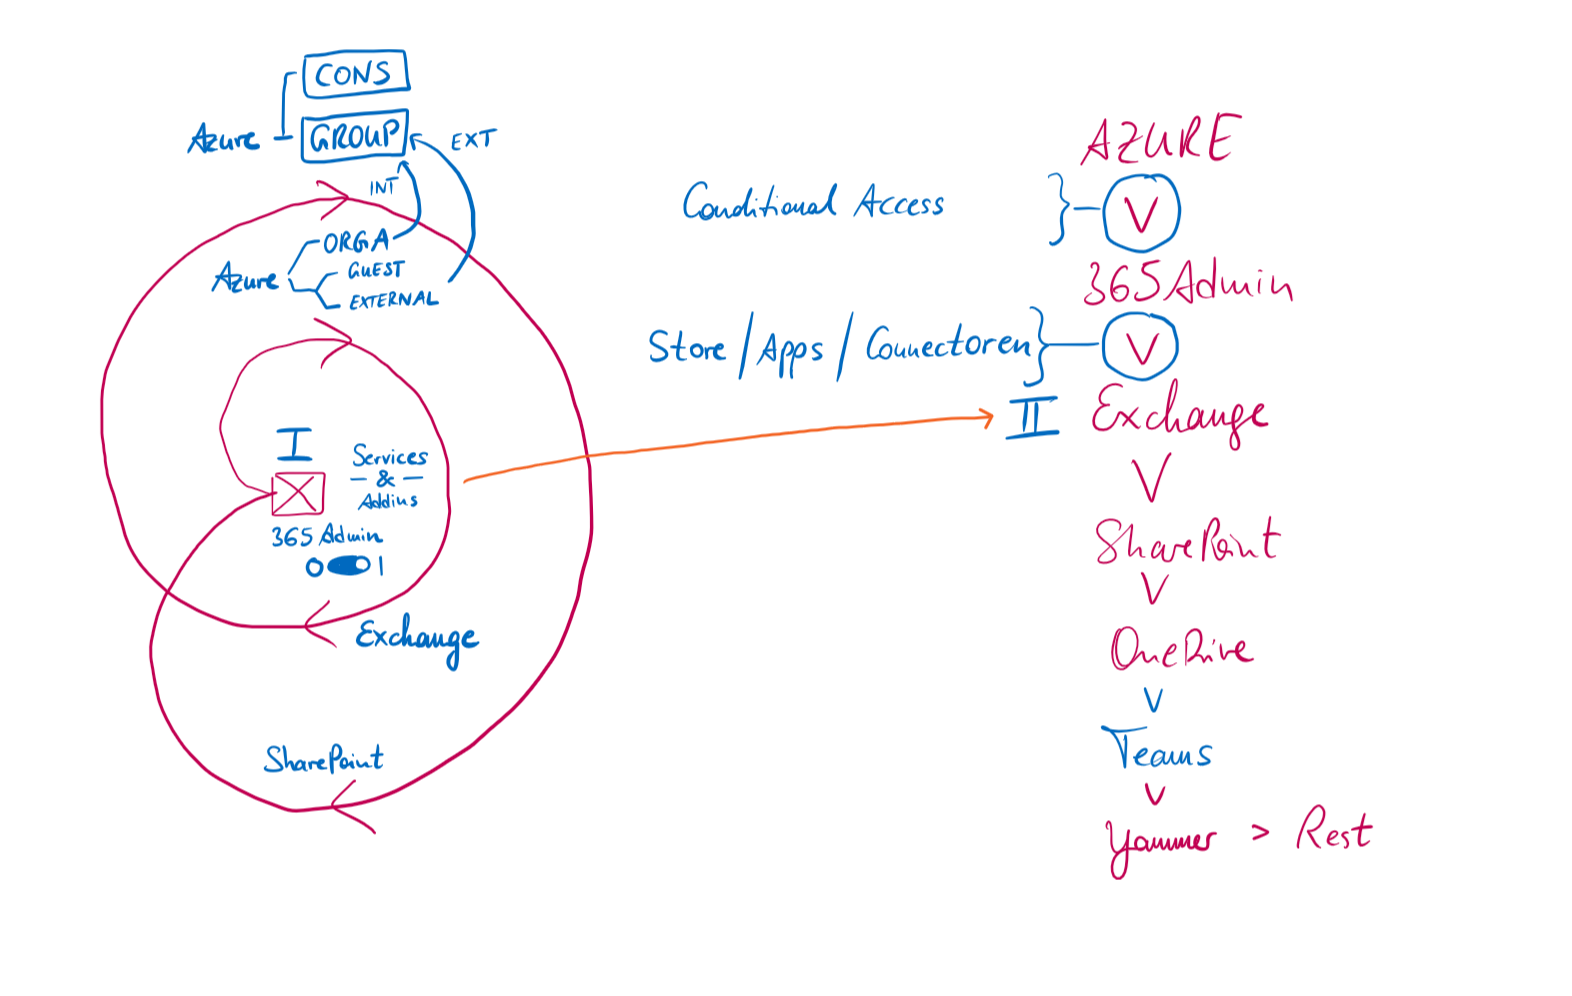 CONS
Azure GROUP EXT
INT
ORGA
Azure GUEST
EXTERNAL
I
Services
- & -
Addins
365 Admin
0 1
Exchange
SharePoint
AZURE
Conditional Access } V
365 Admin
Store / Apps / Connectoren } V
II Exchange
V
SharePoint
V
OneDrive
V
Teams
V
Yammer > Rest